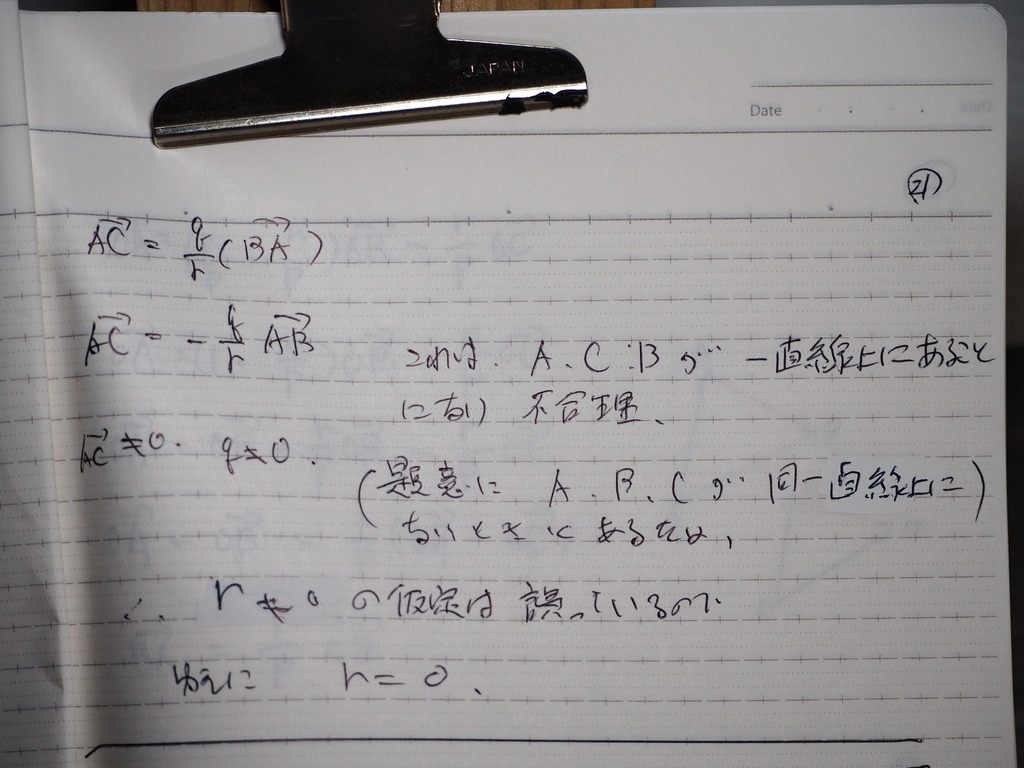 JAPAN
Date
21
AC = q/r (BA)
AC = - q/r AB
これは、A、C、Bが 一直線上にあること
になり 不合理、
AC ≠ 0. q ≠ 0.
(題意に A、B、Cが 同一直線上に)
ないときにあるため、
∴ r ≠ 0 の仮定は 誤っているので
ゆえに r = 0、